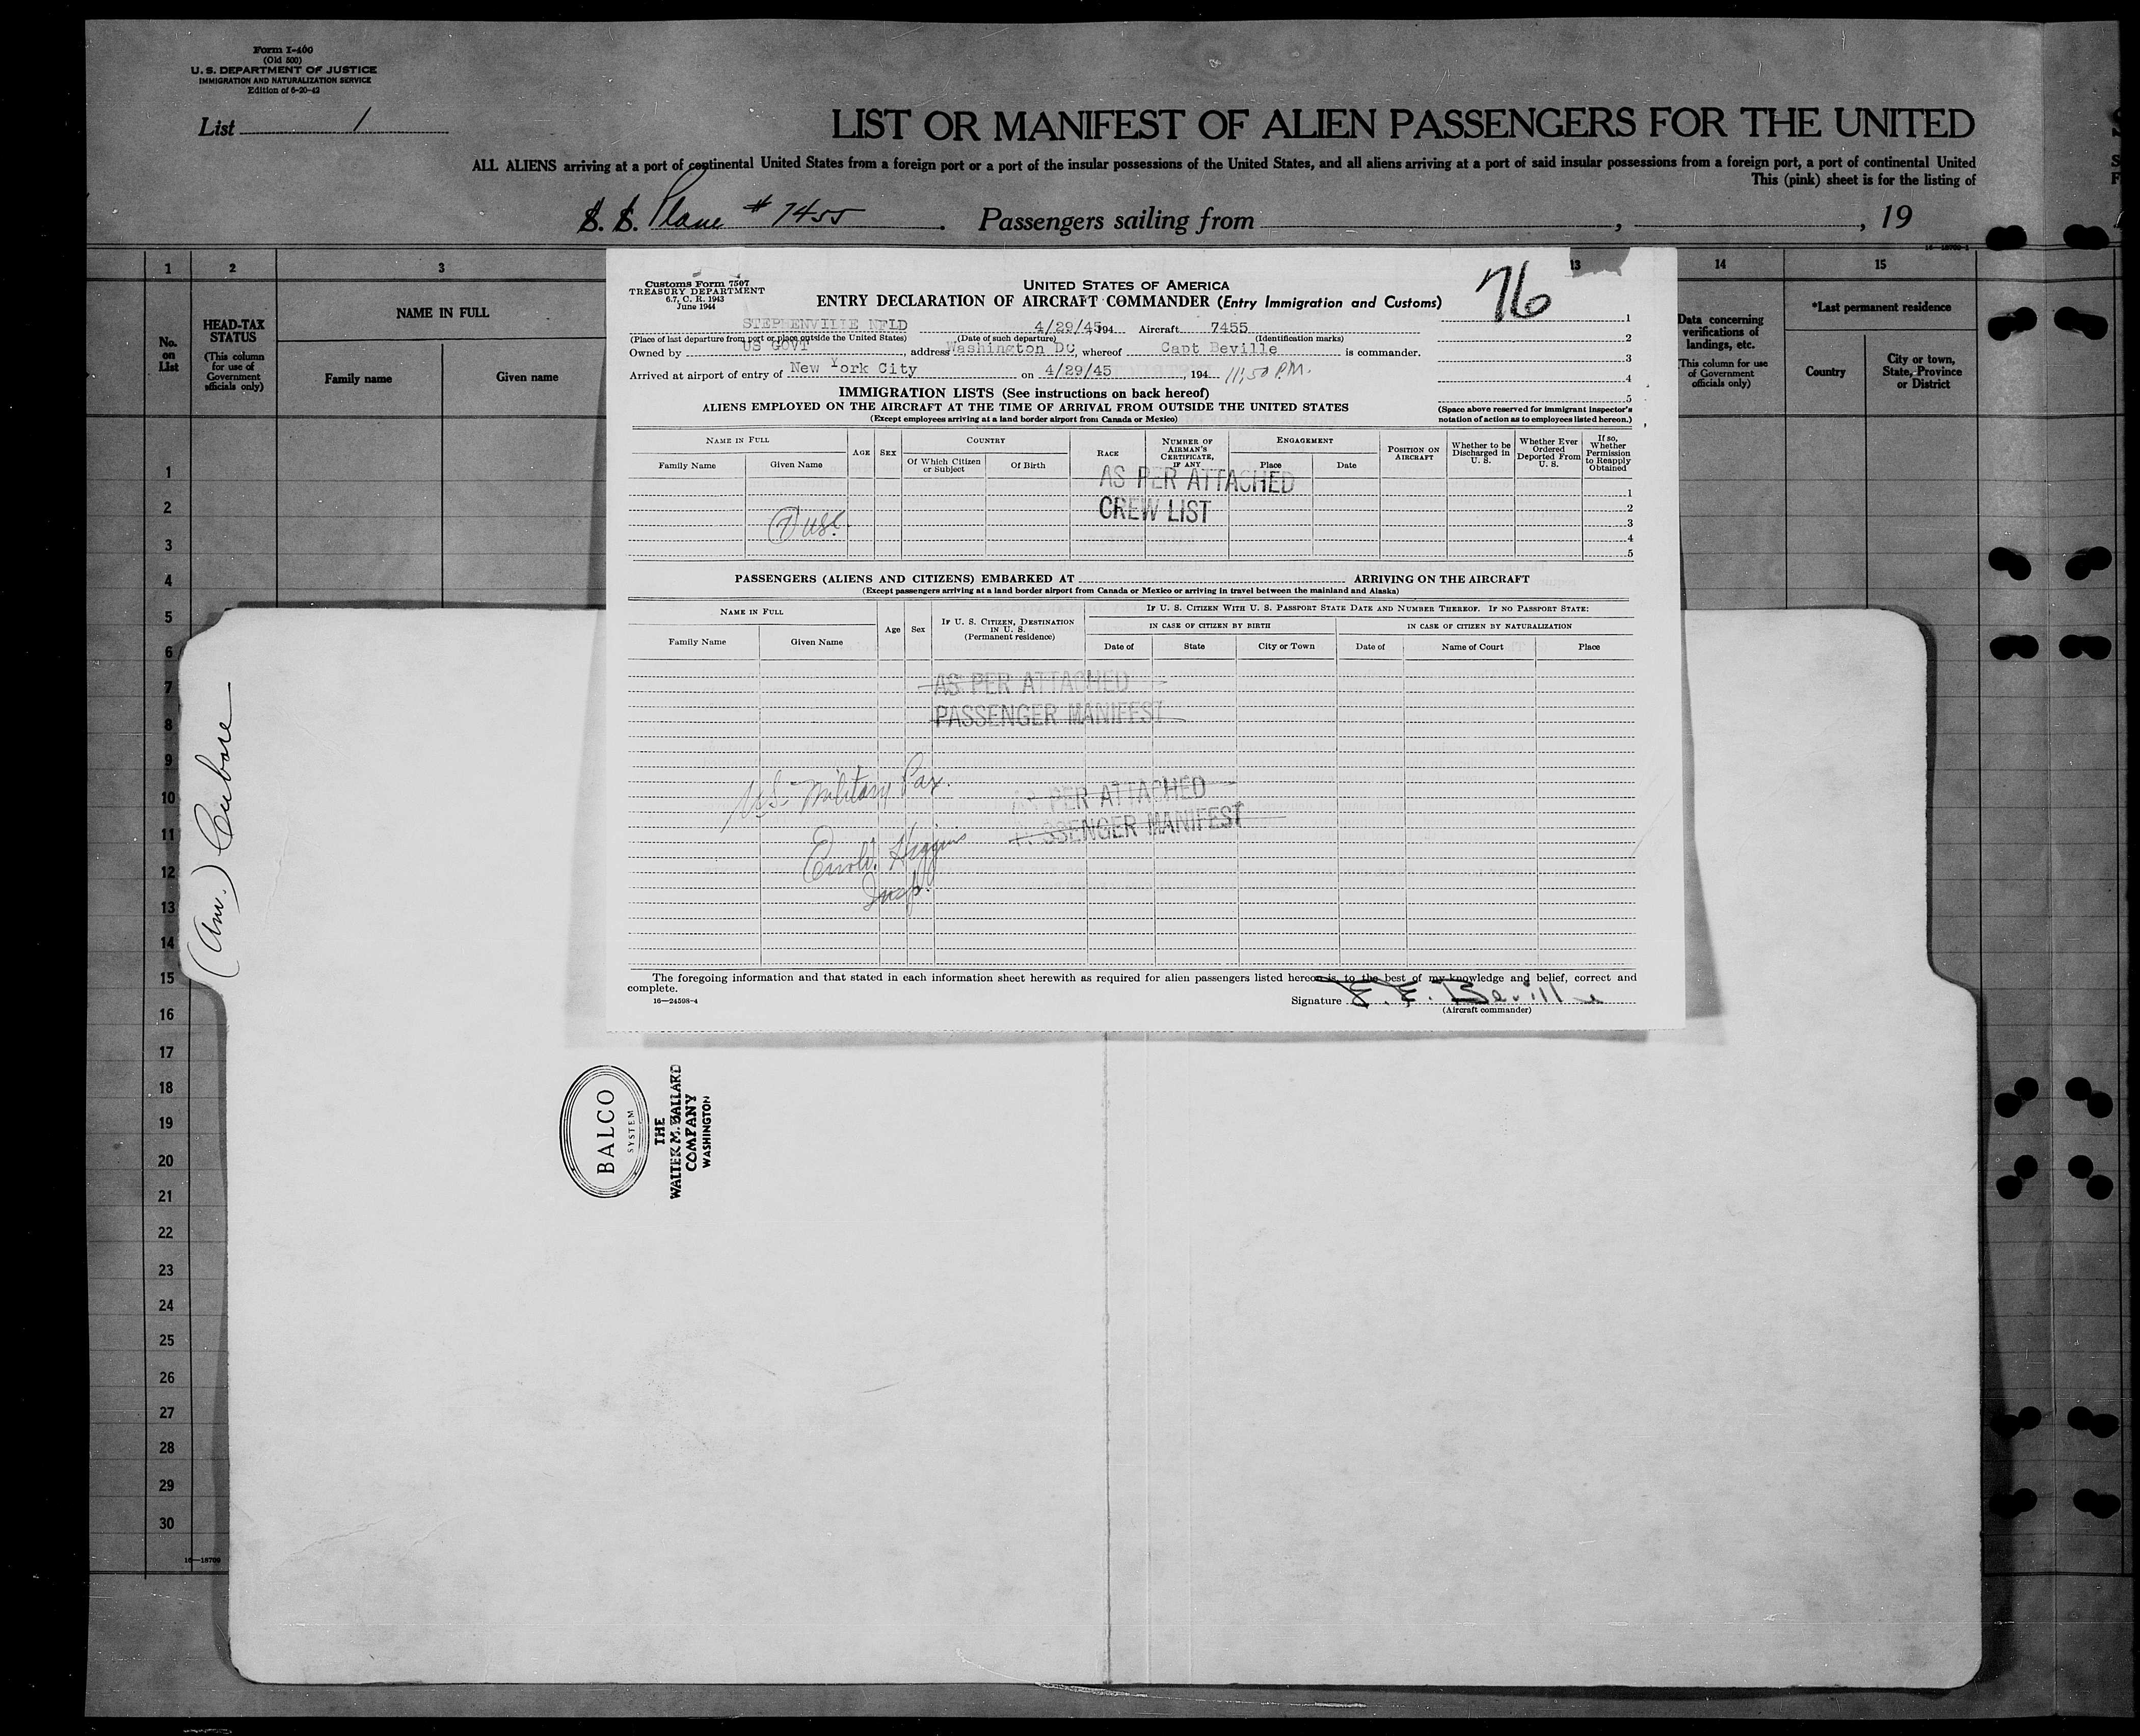 Form I-400
(Old 500)
U. S. DEPARTMENT OF JUSTICE
IMMIGRATION AND NATURALIZATION SERVICE
Edition of 6-20-43
List 1
LIST OR MANIFEST OF ALIEN PASSENGERS FOR THE UNITED
ALL ALIENS arriving at a port of continental United States from a foreign port or a port of the insular possessions of the United States, and all aliens arriving at a port of said insular possessions from a foreign port, a port of continental United
This (pink) sheet is for the listing of
S. S. Plane # 7455. Passengers sailing from , , 19
16—18709-1
1 2 3 13 14 15
No. on List
HEAD-TAX STATUS
(This column for use of Government officials only)
NAME IN FULL
Family name Given name
Data concerning verifications of landings, etc.
(This column for use of Government officials only)
*Last permanent residence
Country
City or town, State, Province or District
Customs Form 7507
TREASURY DEPARTMENT
6.7, C. R. 1943
June 1944
UNITED STATES OF AMERICA
ENTRY DECLARATION OF AIRCRAFT COMMANDER (Entry Immigration and Customs)
76
STEPHENVILLE NFLD 4/29/45 194 Aircraft 7455
(Place of last departure from port or place outside the United States) (Date of such departure) (Identification marks)
Owned by US GOVT, address Washington DC, whereof Capt Beville is commander.
Arrived at airport of entry of New York City on 4/29/45, 194 11;50 P.M.
1
2
3
4
5
IMMIGRATION LISTS (See instructions on back hereof)
ALIENS EMPLOYED ON THE AIRCRAFT AT THE TIME OF ARRIVAL FROM OUTSIDE THE UNITED STATES
(Except employees arriving at a land border airport from Canada or Mexico)
(Space above reserved for immigrant inspector's
notation of action as to employees listed hereon.)
NAME IN FULL
Family Name Given Name
AGE SEX
COUNTRY
Of Which Citizen or Subject Of Birth
RACE
NUMBER OF AIRMAN'S CERTIFICATE, IF ANY
ENGAGEMENT
Place Date
POSITION ON AIRCRAFT
Whether to be Discharged in U. S.
Whether Ever Ordered Deported From U. S.
If so, Whether Permission to Reapply Obtained
AS PER ATTACHED
CREW LIST
USC.
1
2
3
4
5
PASSENGERS (ALIENS AND CITIZENS) EMBARKED AT ARRIVING ON THE AIRCRAFT
(Except passengers arriving at a land border airport from Canada or Mexico or arriving in travel between the mainland and Alaska)
NAME IN FULL
Family Name Given Name
Age Sex
IF U. S. CITIZEN, DESTINATION IN U. S.
(Permanent residence)
IF U. S. CITIZEN WITH U. S. PASSPORT STATE DATE AND NUMBER THEREOF. IF NO PASSPORT STATE:
IN CASE OF CITIZEN BY BIRTH IN CASE OF CITIZEN BY NATURALIZATION
Date of State City or Town Date of Name of Court Place
AS PER ATTACHED
PASSENGER MANIFEST
U.S. Military Pax.
AS PER ATTACHED
PASSENGER MANIFEST
Higgins
Insp.
The foregoing information and that stated in each information sheet herewith as required for alien passengers listed hereon is, to the best of my knowledge and belief, correct and
complete.
16—24598-4
Signature E. E. Beville
(Aircraft commander)
1
2
3
4
5
6
7
8
9
10
11
12
13
14
15
16
17
18
19
20
21
22
23
24
25
26
27
28
29
30
16—18709
BALCO
SYSTEM
THE
WALTER M. BALLARD
COMPANY
WASHINGTON